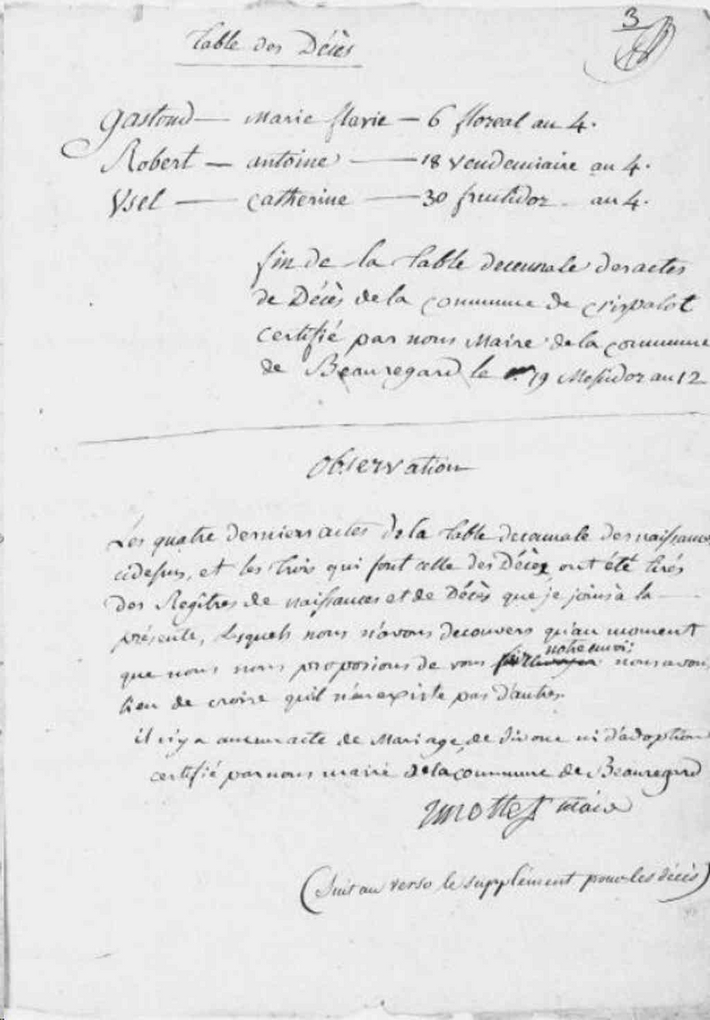 3
Table des Décès
Gastoud — Marie flavie — 6 floreal an 4.
Robert — antoine — 18 Vendemiaire an 4.
Ysel — catherine — 30 fructidor an 4.
fin de la Table decennale des actes
de Décès de la commune de
certifié par nous Maire de la commune
de Beauregard le 19 Messidor an 12
Observation
Les quatre derniers actes de la Table decennale des naissances
cidessus, et les trois qui font celle des Décès ont été tirés
des Regîtres de naissances et de Décès que je joins à la
présente, lesquels nous n'avons decouvers qu'au moment
notre envoi:
que nous nous proposions de vous nous avons
lieu de croire qu'il n'en existe pas d'autres.
il n'y a aucun acte de Mariage, de divorce ni d'adoption
certifié par nous maire de la commune de Beauregard
maire
(Suit au verso le supplément pour les décès)